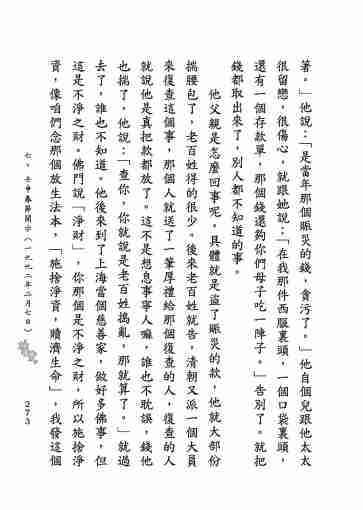 著。」他說：「是當年那個賑災的錢，貪污了。」他自個兒跟他太太
很留戀，很傷心，就跟她說：「在我那件西服裏頭，一個口袋裏頭，
還有一個存款單，那個錢還夠你們母子吃一陣子。」告別了。就把
錢都取出來了，別人都不知道的事。
他父親是怎麼回事呢，具體就是盜了賑災的款，他就大部份
揣腰包了，老百姓得的很少。後來老百姓就告，清朝又派一個大員
來復查這個事，那個人就送了一筆厚禮給那個復查的人，復查的人
就說他是真把款都放了。這不是想息事寧人嘛，誰也不耽誤，錢他
也揣了，他說：「查你，你就說是老百姓搗亂，那就算了。」就過
去了，誰也不知道。他後來到了上海當個慈善家，做好多佛事，但
這是不淨之財。佛門說「淨財」，你那個是不淨之財，所以施捨淨
資，像咱們念那個放生法本，「施捨淨資，贖濟生命」，我發這個
七、壬申春節開示（一九九二年二月七日）
273